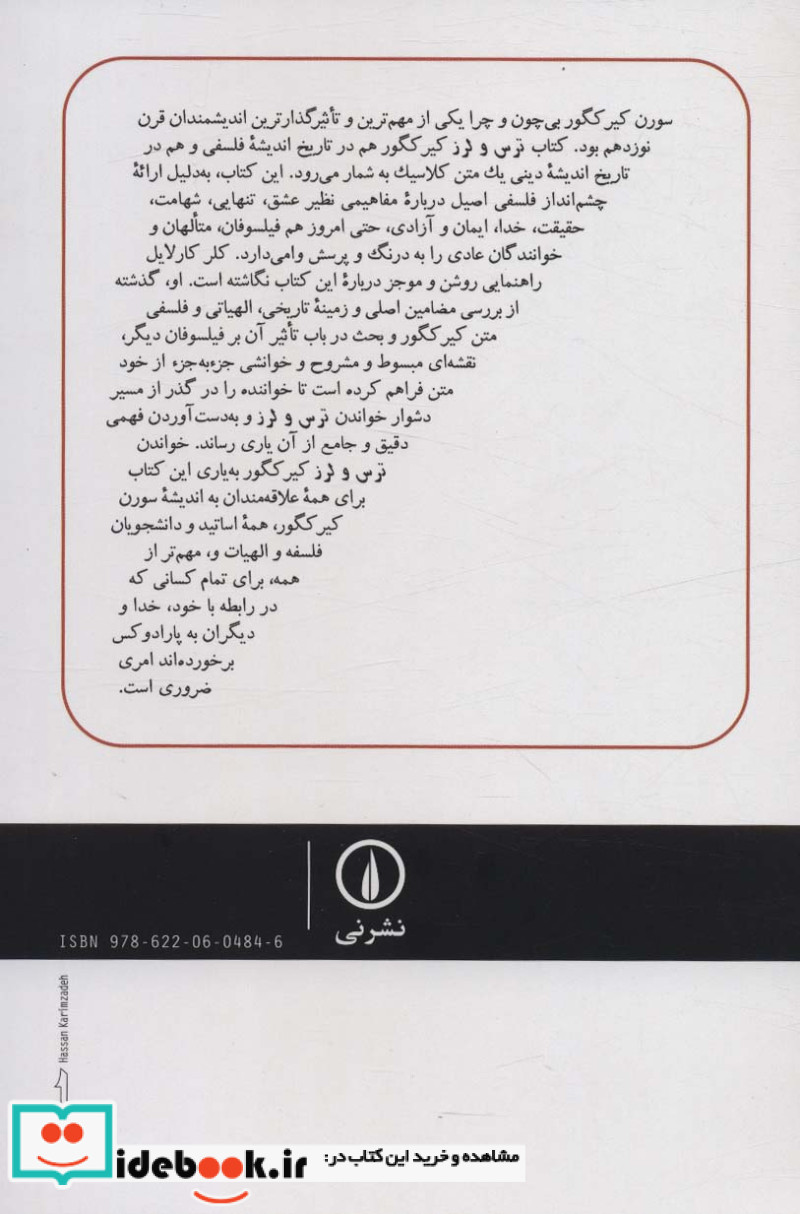 سورن کیرکگور بی‌چون و چرا یکی از مهم‌ترین و تأثیرگذارترین اندیشمندان قرن
نوزدهم بود. کتاب ترس و لرز کیرکگور هم در تاریخ اندیشهٔ فلسفی و هم در
تاریخ اندیشهٔ دینی یك متن کلاسیك به شمار می‌رود. این کتاب، به‌دلیل ارائهٔ
چشم‌انداز فلسفی اصیل دربارهٔ مفاهیمی نظیر عشق، تنهایی، شهامت،
حقیقت، خدا، ایمان و آزادی، حتی امروز هم فیلسوفان، متألهان و
خوانندگان عادی را به درنگ و پرسش وامی‌دارد. کلر کارلایل
راهنمایی روشن و موجز دربارهٔ این کتاب نگاشته است. او، گذشته
از بررسی مضامین اصلی و زمینهٔ تاریخی، الهیاتی و فلسفی
متن کیرکگور و بحث در باب تأثیر آن بر فیلسوفان دیگر،
نقشه‌ای مبسوط و مشروح و خوانشی جزءبه‌جزء از خود
متن فراهم کرده است تا خواننده را در گذر از مسیر
دشوار خواندن ترس و لرز و به‌دست‌آوردن فهمی
دقیق و جامع از آن یاری رساند. خواندن
ترس و لرز کیرکگور به‌یاری این کتاب
برای همهٔ علاقه‌مندان به اندیشهٔ سورن
کیرکگور، همهٔ اساتید و دانشجویان
فلسفه و الهیات و، مهم‌تر از
همه، برای تمام کسانی که
در رابطه با خود، خدا و
دیگران به پارادوکس
برخورده‌اند امری
ضروری است.
نشرنی
ISBN 978-622-06-0484-6
Hassan Karimzadeh
مشاهده و خرید این کتاب در:
idebook.ir